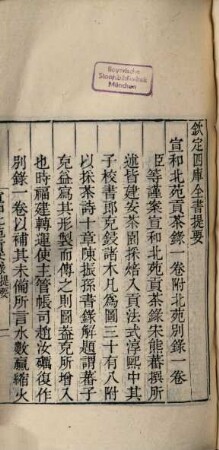 Bayerische
Staatsbibliothek
München
欽定四庫全書提要
宣和北苑貢茶錄一卷附北苑別錄一卷
臣等謹案宣和北苑貢茶錄宋熊蕃撰所
述皆建安茶園採焙入貢法式淳熙中其
子校書郎克鋟諸木凡爲圖三十有八附
以採茶詩十章陳振孫書錄解題謂蕃子
克益寫其形製而傳之則圖蓋克所增入
也時福建轉運使主管帳司趙汝礪復作
別錄一卷以補其未備所言水數贏縮火